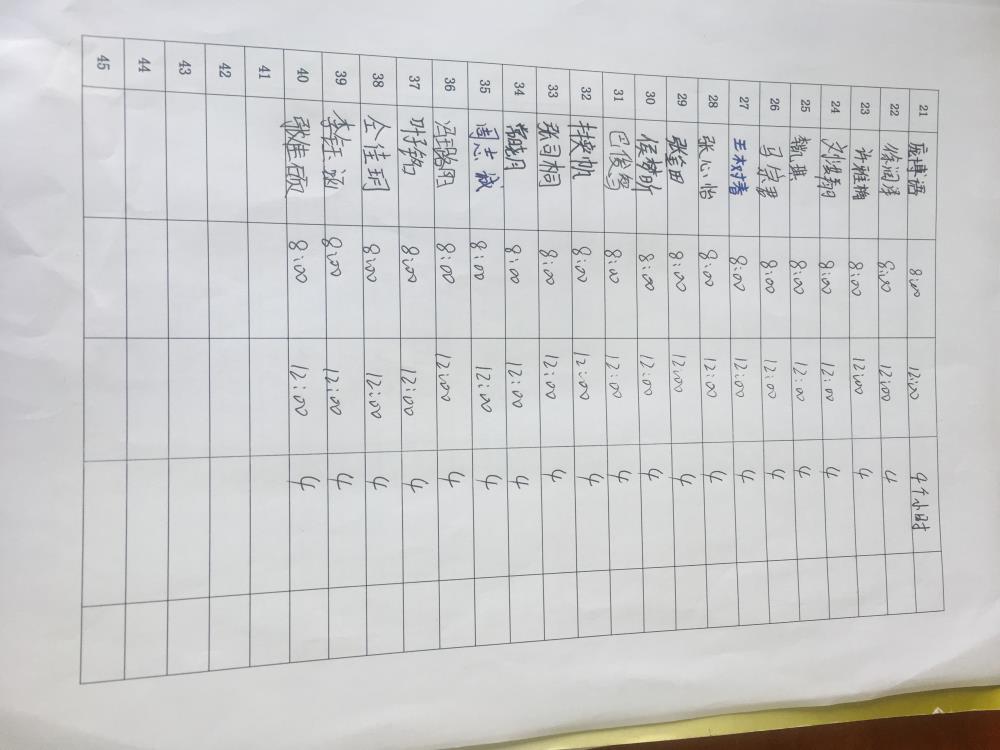 21 庞博语 8:00 12:00 4个小时
22 修润泽 8:00 12:00 4
23 许雅楠 8:00 12:00 4
24 刘焜翔 8:00 12:00 4
25 魏凡琪 8:00 12:00 4
26 马宗君 8:00 12:00 4
27 王树青 8:00 12:00 4
28 张心怡 8:00 12:00 4
29 8:00 12:00 4
30 侯梦昕 8:00 12:00 4
31 巴俊鸳 8:00 12:00 4
32 8:00 12:00 4
33 张司桐 8:00 12:00 4
34 常晓月 8:00 12:00 4
35 周志斌 8:00 12:00 4
36 冯璐阳 8:00 12:00 4
37 叶子铭 8:00 12:00 4
38 仝佳玥 8:00 12:00 4
39 李钰涵 8:00 12:00 4
40 耿佳欣 8:00 12:00 4
41
42
43
44
45